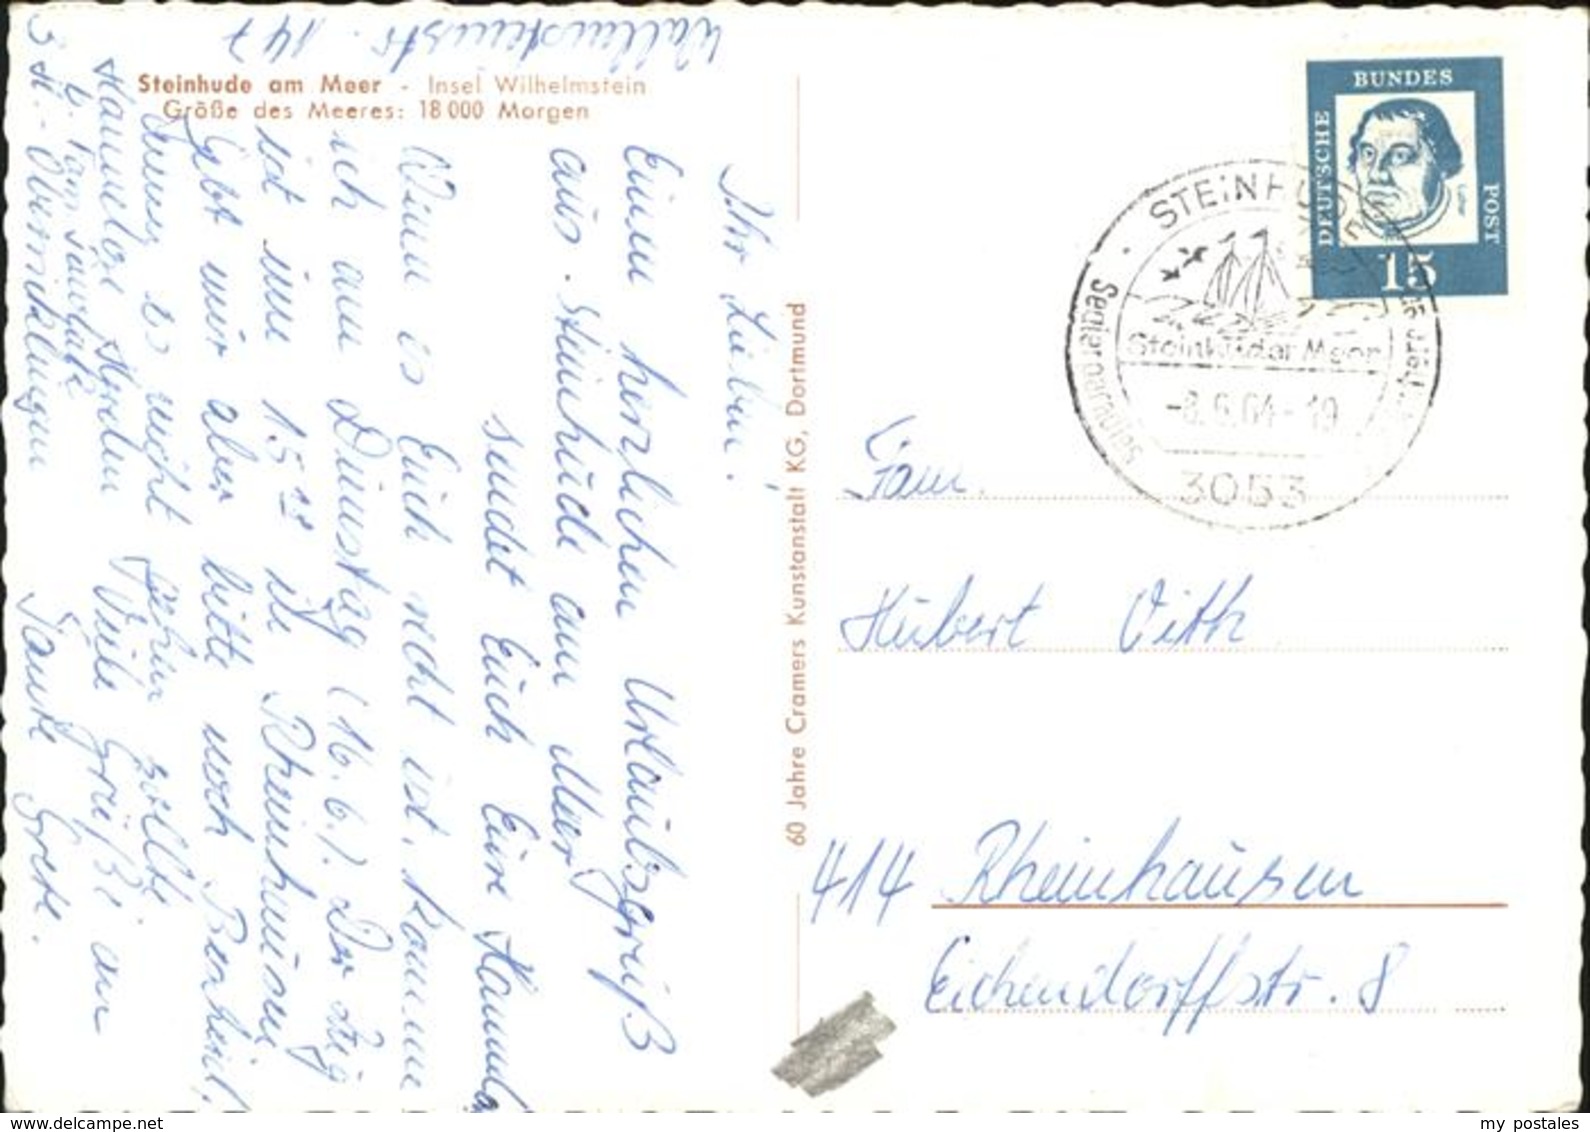 Steinhude am Meer - Insel Wilhelmstein
Größe des Meeres: 18 000 Morgen
Ihr Lieben!
Einen herzlichen Urlaubsgruß
aus Steinhude am Meer
sendet Euch Eure Hannelo
Wenn es Euch recht ist, komme
ich am Dienstag (16.6). Der Zug
ist um 15
in Rheinhausen
Gebt mir aber bitte noch Bescheid,
wenn es nicht gehn sollte.
Hannelore Viele Grüße an
Tante Grete.
147
60 Jahre Cramers Kunstanstalt KG, Dortmund
DEUTSCHE
BUNDES
POST
15
STEINHUDE
Steinhuder Meer
-8.6.64-19
3053
Fam.
Hubert Vith
414 Rheinhausen
Eichendorffstr. 8
my postales